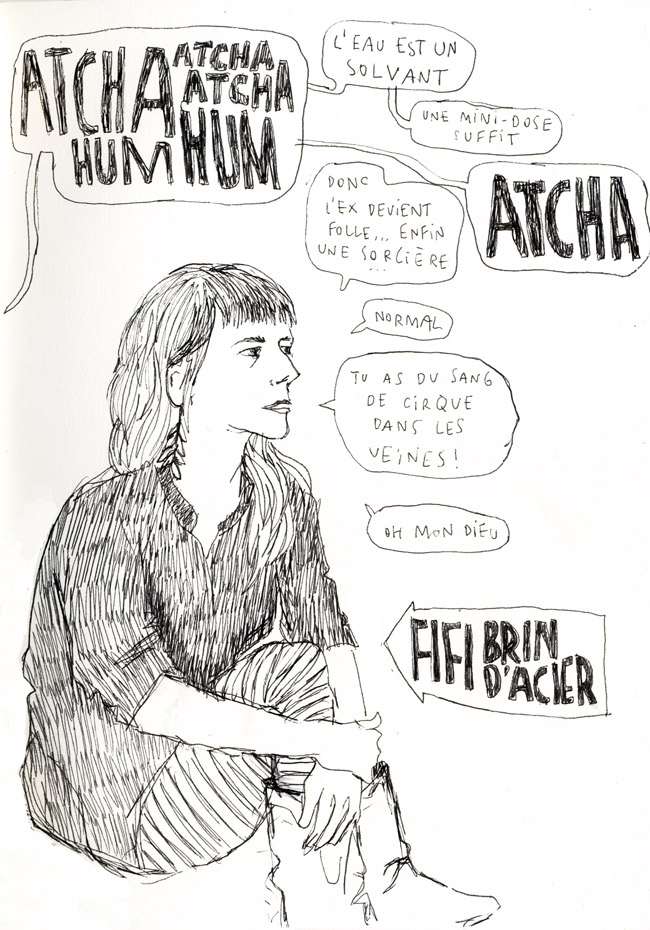 ATCHA
ATCHA
ATCHA
HUM HUM
L'EAU EST UN
SOLVANT
UNE MINI-DOSE
SUFFIT
ATCHA
DONC
L'EX DEVIENT
FOLLE... ENFIN
UNE SORCIÈRE
...
NORMAL
TU AS DU SANG
DE CIRQUE
DANS LES
VEINES!
OH MON DIEU
FIFI BRIN
D'ACIER